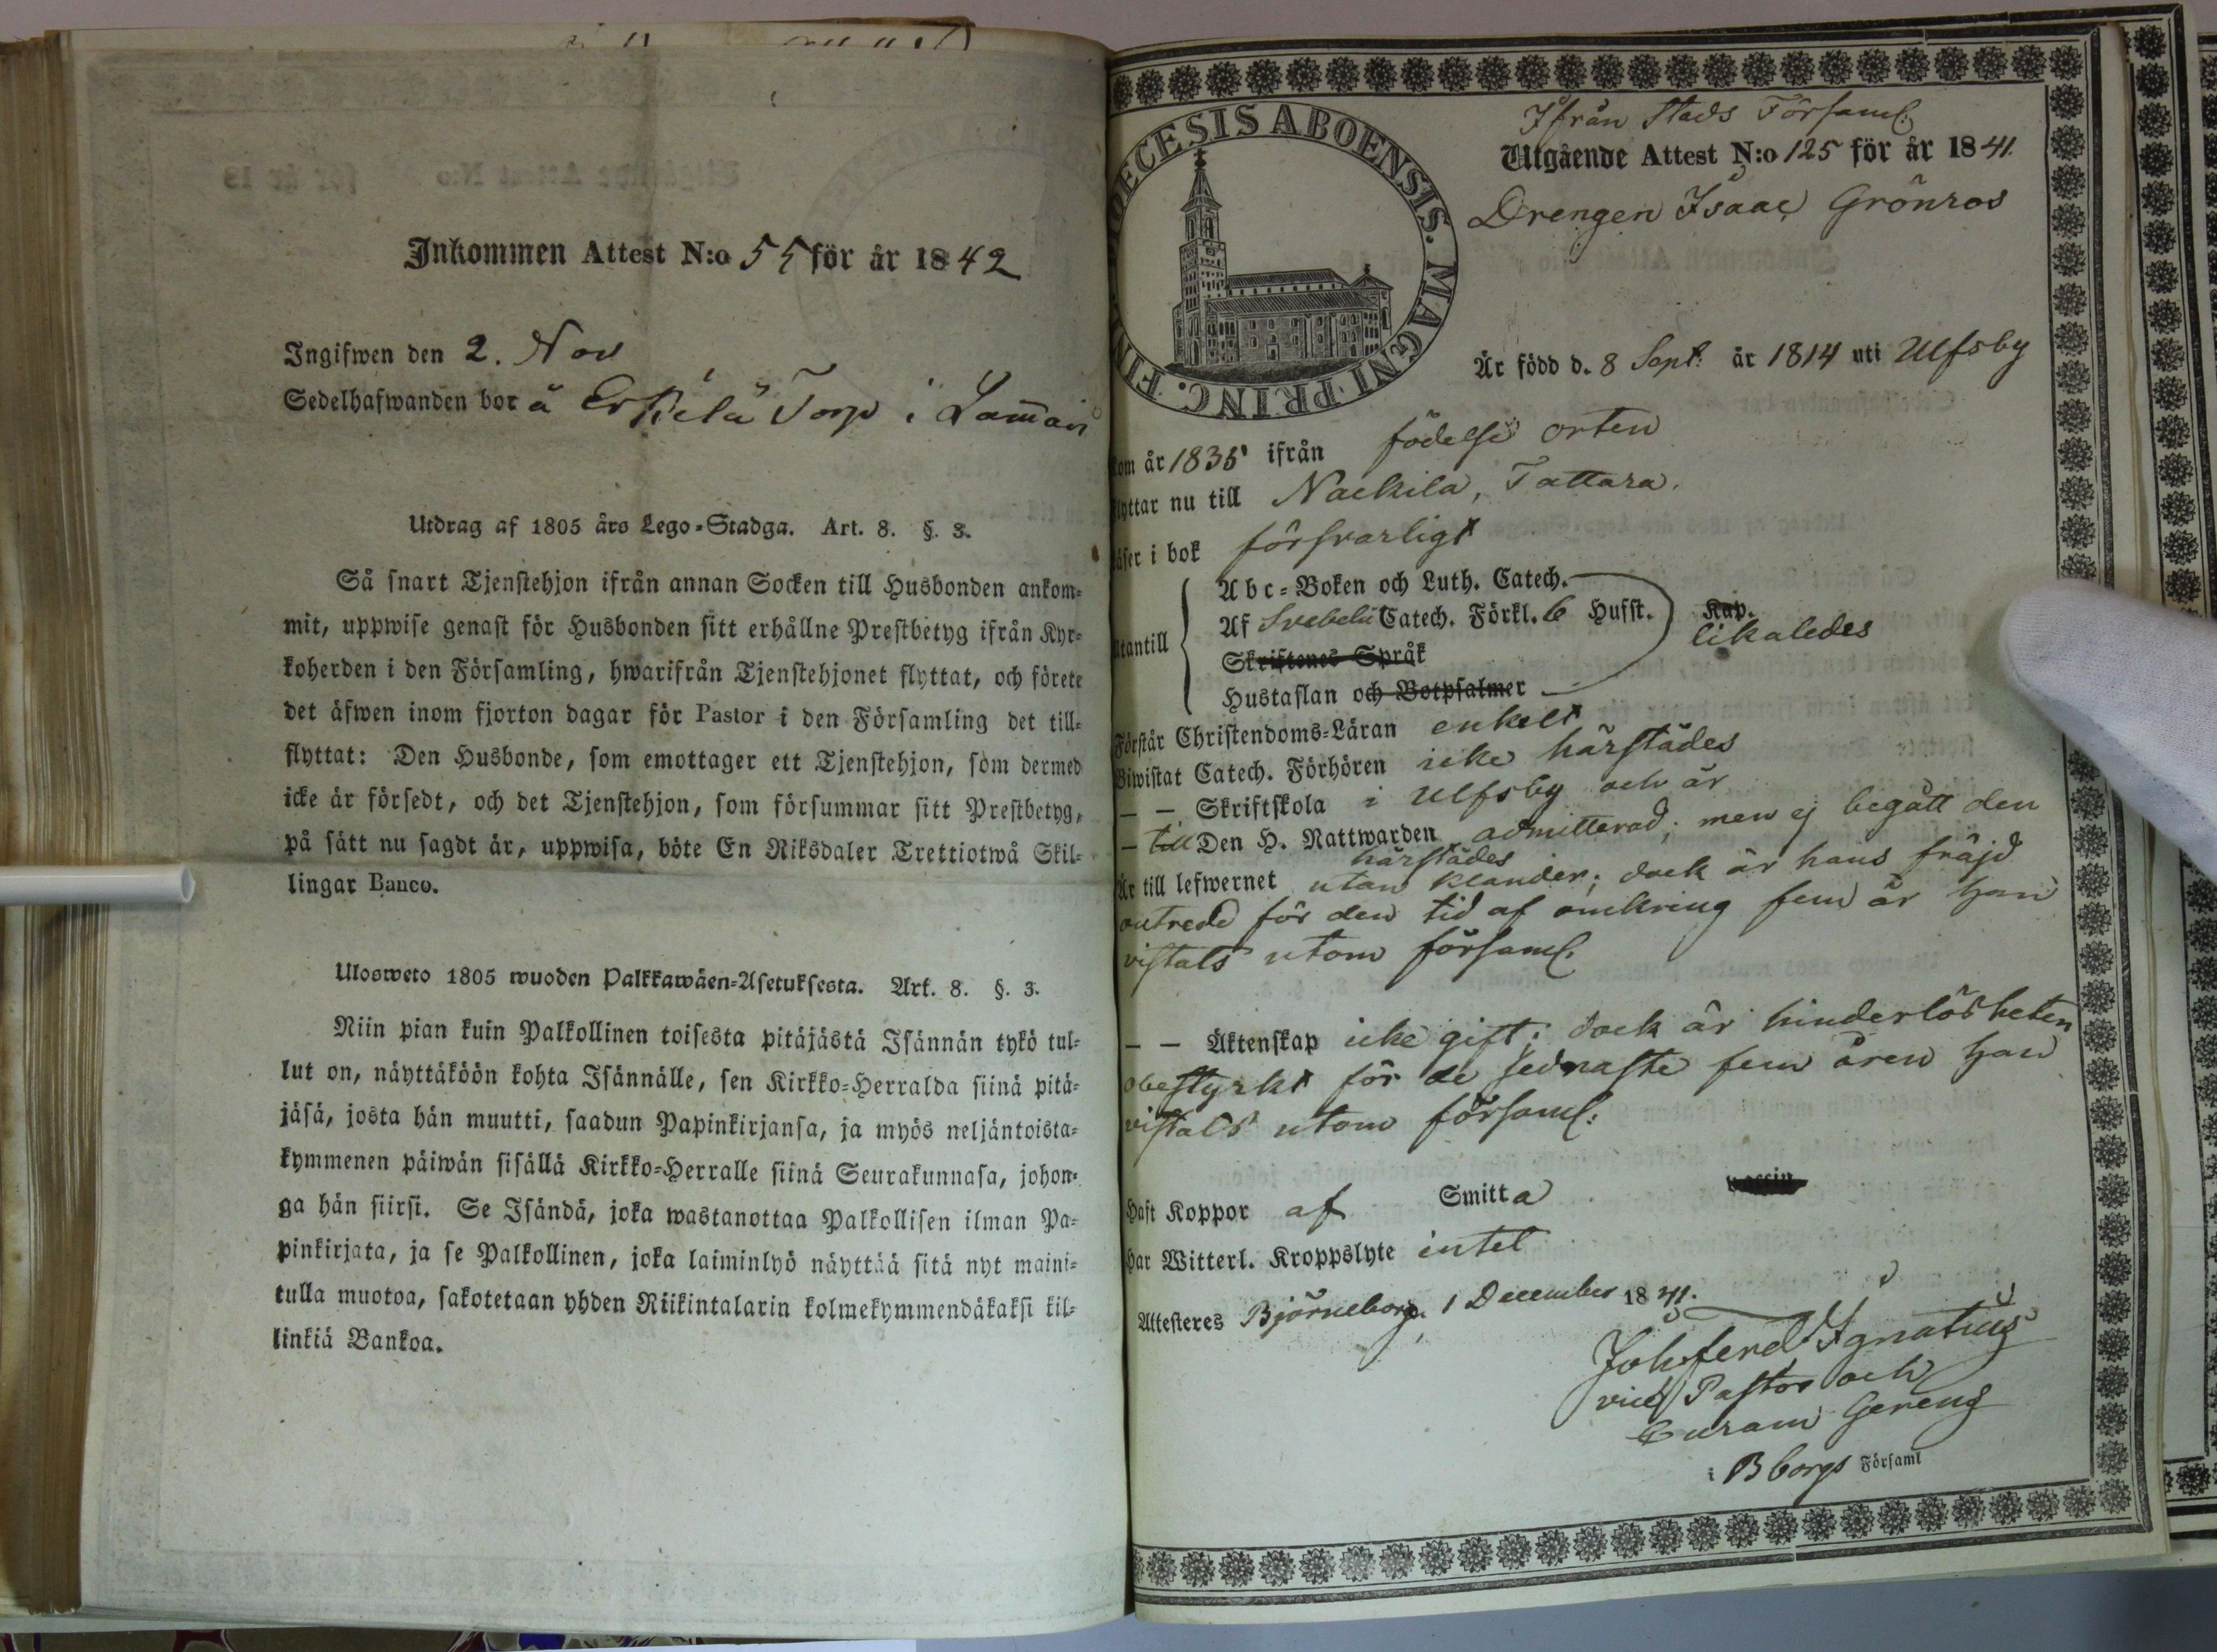 Inkommen Attest N:o 55 för år 1842
Ingifwen den 2. Nov
Sedelhafwanden bor å Erkilä Torp i Lamais
Utdrag af 1805 års Lego-Stadga. Art. 8. §. 3.
Så snart Tjenstehjon ifrån annan Socken till Husbonden ankom-
mit, uppwise genast för Husbonden sitt erhållne Prestbetyg ifrån Kyr-
koherden i den Församling, hwarifrån Tjenstehjonet flyttat, och förete
det äfwen inom fjorton dagar för Pastor i den Församling det till-
flyttat: Den Husbonde, som emottager ett Tjenstehjon, som dermed
icke är försedt, och det Tjenstehjon, som försummar sitt Prestbetyg,
på sätt nu sagdt är, uppwisa, böte En Riksdaler Trettiotwå Skil-
lingar Banco.
Ulosweto 1805 wuoden Palkkawäen-Asetuksesta. Art. 8. §. 3.
Niin pian kuin Palkollinen toisesta pitäjästä Isännän tykö tul-
lut on, näyttäköön kohta Isännälle, sen Kirkko-Herralda siinä pitä-
jäsä, josta hän muutti, saadun Papinkirjansa, ja myös neljäntoista-
kymmenen päiwän sisällä Kirkko-Herralle siinä Seurakunnasa, johon-
ga hän siirsi. Se Isändä, joka wastanottaa Palkollisen ilman Pa-
pinkirjata, ja se Palkollinen, joka laiminlyö näyttää sitä nyt maini-
tulla muotoa, sakotetaan yhden Riikintalarin kolmekymmendäkaksi kil-
linkiä Bankoa.
DIOECESIS ABOENSIS. MAGNI PRINC. FIN
Ifrån Stads Församl:
Utgående Attest N:o 125 för år 1841.
Drengen Isaac Grönros
Är född d. 8 Sept: år 1814 uti Ulfsby
kom år 1835 ifrån födelse orten
flyttar nu till Nackila, Tattara.
läser i bok försvarligt
Utantill
Abc-Boken och Luth. Catech.
Af Svebelii Catech. Förkl. 6 Hufst. Kap.
likaledes
Skriftenes Språk
Hustaflan och Botpsalmer
Förstår Christendoms-Läran enkelt
Biwistat Catech. Förhören icke härstädes
— — Skriftskola i Ulfsby och är
— till Den H. Nattwarden admitterad; men ej begått den
härstädes
Är till lefwernet utan klander; dock är hans fräjd
outredd för den tid af omkring fem år han
vistats utom församl:
— — Äktenskap icke gift; dock är hinderlösheten
obestyrkt för de sednaste fem åren han
vistats utom församl:
Haft Koppor af Smitta vaccin
har Witterl. Kroppslyte intet
Attesteres Björneborg. 1 December 1841.
Joh. ferd Ignatius
vice Pastor och
Curam Gerens
i Bborgs Församl